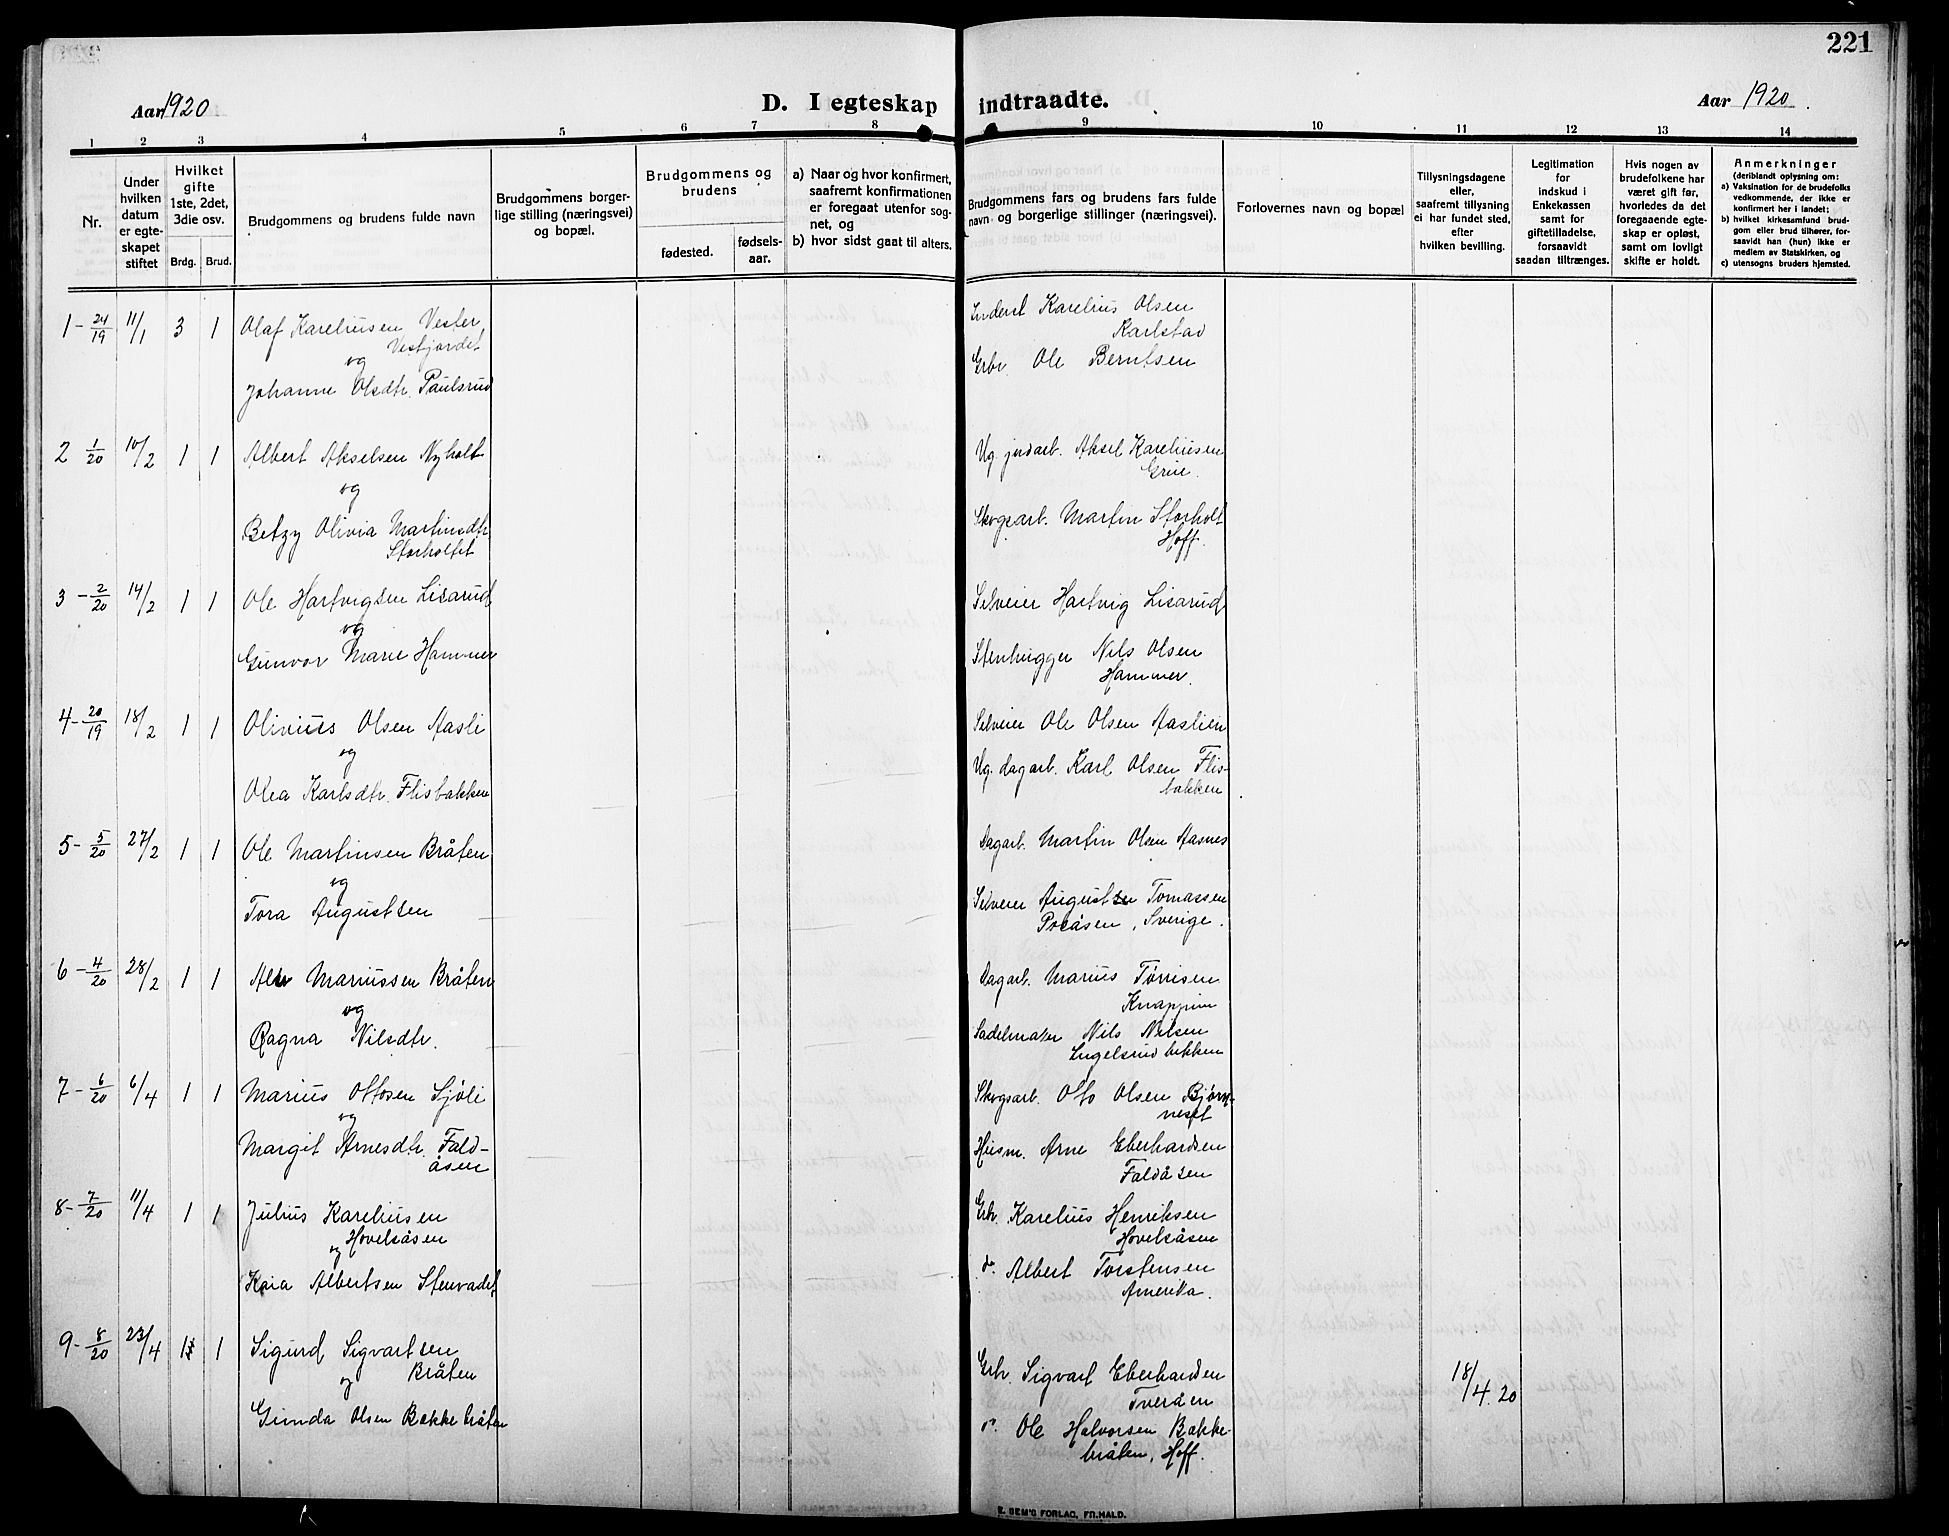 221
Aar 1920
D. I egteskap indtraadte.
Aar 1920.
1 2 3 4 5 6 7 8 9 10 11 12 13 14
Nr.
Under hvilken datum er egteskapet stiftet
Hvilket gifte 1ste, 2det, 3die osv.
Brdg. Brud.
Brudgommens og brudens fulde navn
Brudgommens borgerlige stilling (næringsvei) og bopæl.
Brudgommens og brudens
fødested.
fødselsaar.
a) Naar og hvor konfirmert, saafremt konfirmationen er foregaat utenfor sognet, og
b) hvor sidst gaat til alters.
Brudgommens fars og brudens fars fulde navn og borgerlige stillinger (næringsvei).
Forlovernes navn og bopæl
Tillysningsdagene eller, saafremt tillysning ei har fundet sted, efter hvilken bevilling.
Legitimation for indskud i Enkekassen samt for giftetilladelse, forsaavidt saadan tiltrænges.
Hvis nogen av brudefolkene har været gift før, hvorledes da det foregaaende egteskap er opløst, samt om lovligt skifte er holdt.
Anmerkninger
(deriblandt oplysning om:
a) Vaksination for de brudefolks vedkommende, der ikke er konfirmert her i landet;
b) hvilket kirkesamfund brudgom eller brud tilhører, forsaavidt han (hun) ikke er medlem av Statskirken, og
c) utensogns bruders hjemsted.
1 - 24/19 11/1 3 1 Olaf Kareliusen Vester
Vestjordet
og
Johanne Olsdtr. Paulsrud
Inderst Karelius Olsen
Karlstad
Grbr. Ole Berntsen
2 1/20 10/2 1 1 Albert Akselsen Nyholt
og
Betzy Olivia Martinsdtr
Storholtet
Ug. jrdarb. Aksel Kareliusen
Grue.
Skogsarb. Martin Storholt
Hoff.
3 - 2/20 14/2 1 1 Ole Hartvigsen Lisarud
og
Gunvor Marie Hammer
Selveier Hartvig Lisarud
Stenhugger Nils Olsen
Hammer.
4 - 20/19 18/2 1 1 Olivius Olsen Aasli
og
Olea Karlsdtr. Flisbakken
Selveier Ole Olsen Aaslien
Ug. dagarb. Karl Olsen Flis-
bakken
5 - 5/20 27/2 1 1 Ole Martinsen Bråten
og
Tora Augustsen
Dagarb. Martin Olsen Aasnes
Selveier Augustsen Tomassen
Posåsen, Sverige.
6 - 4/20 28/2 1 1 Mariussen Bråten
og
Ragna Nilsdtr.
Dagarb. Marius Tørrisen
Sadelmaker Nils Nilsen
Engelsrudbekken
7 - 6/20 6/4 1 1 Marius Ottosen Sjøli
og
Margit Arnesdtr. Fald-
åsen
Skogsarb. Otto Olsen Bjørn-
neset
Husm. Arne Eberhardsen
Faldåsen
8 - 7/20 11/4 1 1 Julius Kareliusen
Hovelsåsen
og
Kaia Albertsen Stenvadet
Grbr. Karelius Henriksen
Hovelsåsen
do. Albert Torstensen
Amerika.
9 - 8/20 23/4 1 1 Sigurd Sigvartsen
Bråten
og
Gunda Olsen Bækkebråten
Grbr. Sigvart Eberhardsen
Tveråen
do. Ole Halvorsen Bække-
bråten, Hoff.
18/4.20
E. SEM'S FORLAG, FR.HALD.